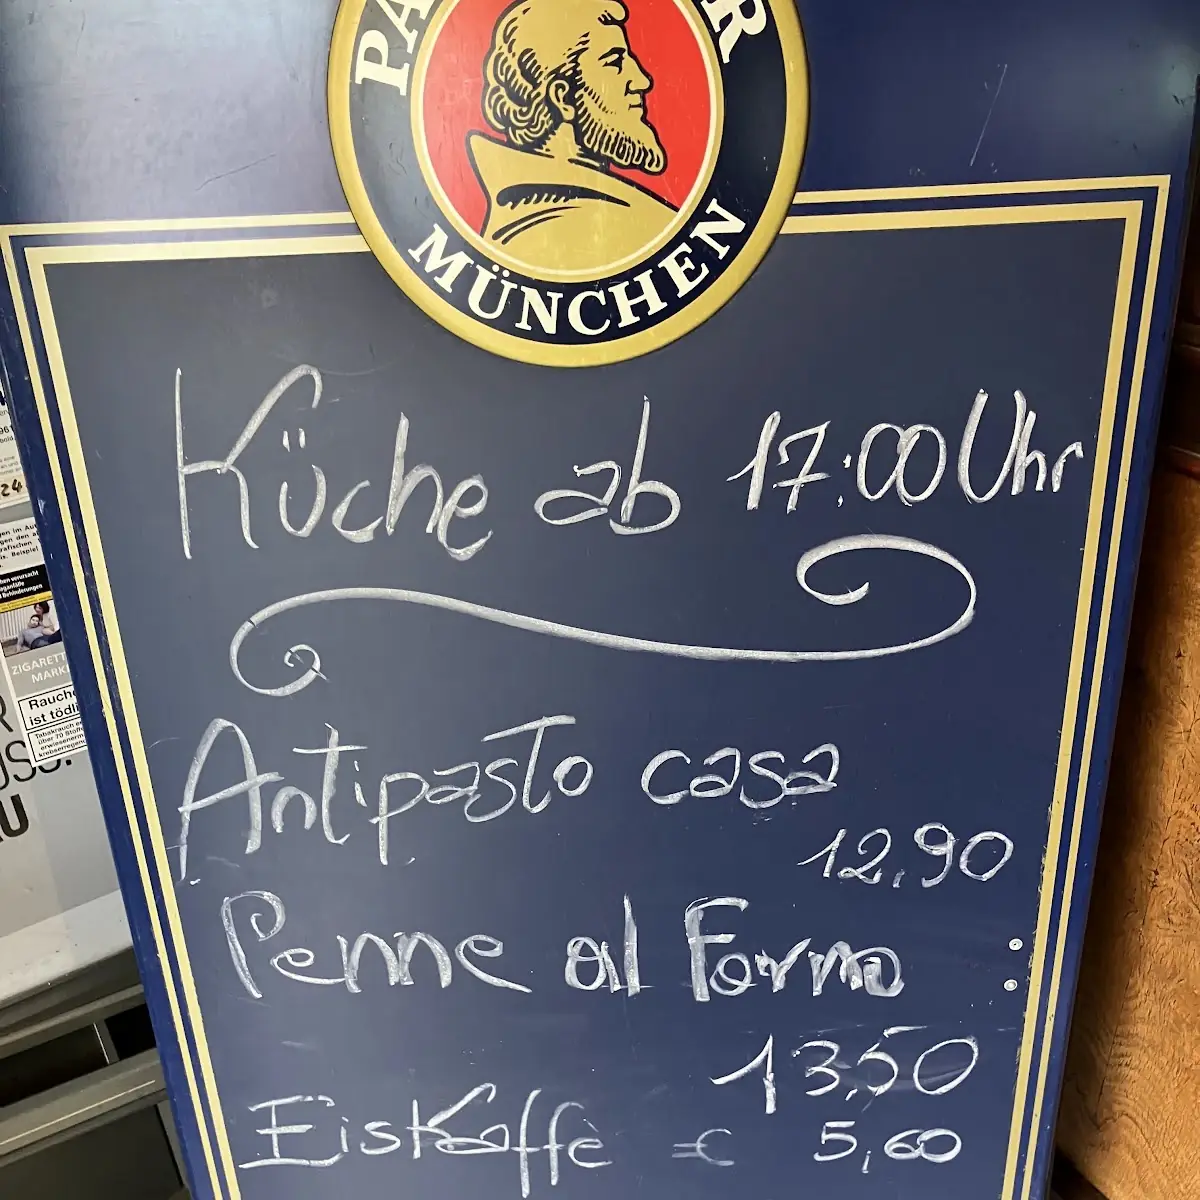 MÜNCHEN
Küche ab 17:00 Uhr
Antipasto casa
12,90
Penne al Forno
13,50
EisKaffè € 5,60
24
ZIGARETT
MARK
Rauche
ist tödli